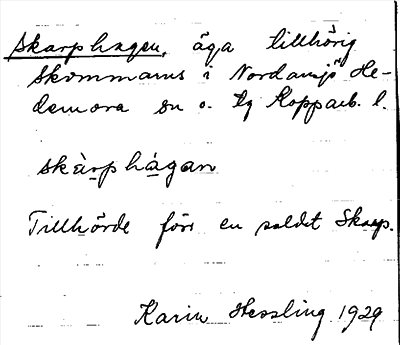 Skarphagen, äga tillhörig
Skommarns i Nordansjö He-
demora sn o. tg Kopparb. l.
skàrphágan
Tillhörde förr en soldat Skarp.
Karin Hessling 1929